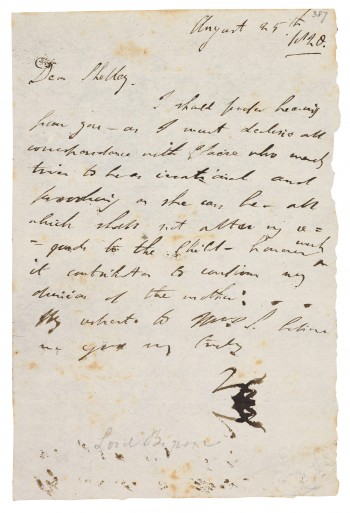 387
August 25th
1820.
Dear Shelley.
I should prefer hearing
from you - as I must decline all
correspondence with Claire who merely
tries to be as irrational and
provoking as she can be - all
which shall not alter my re=
=gards to the Child - however much
it contributes to confirm my
of the mother.
My respects to Mrs S. believe
me yours very truly
Lord Byron